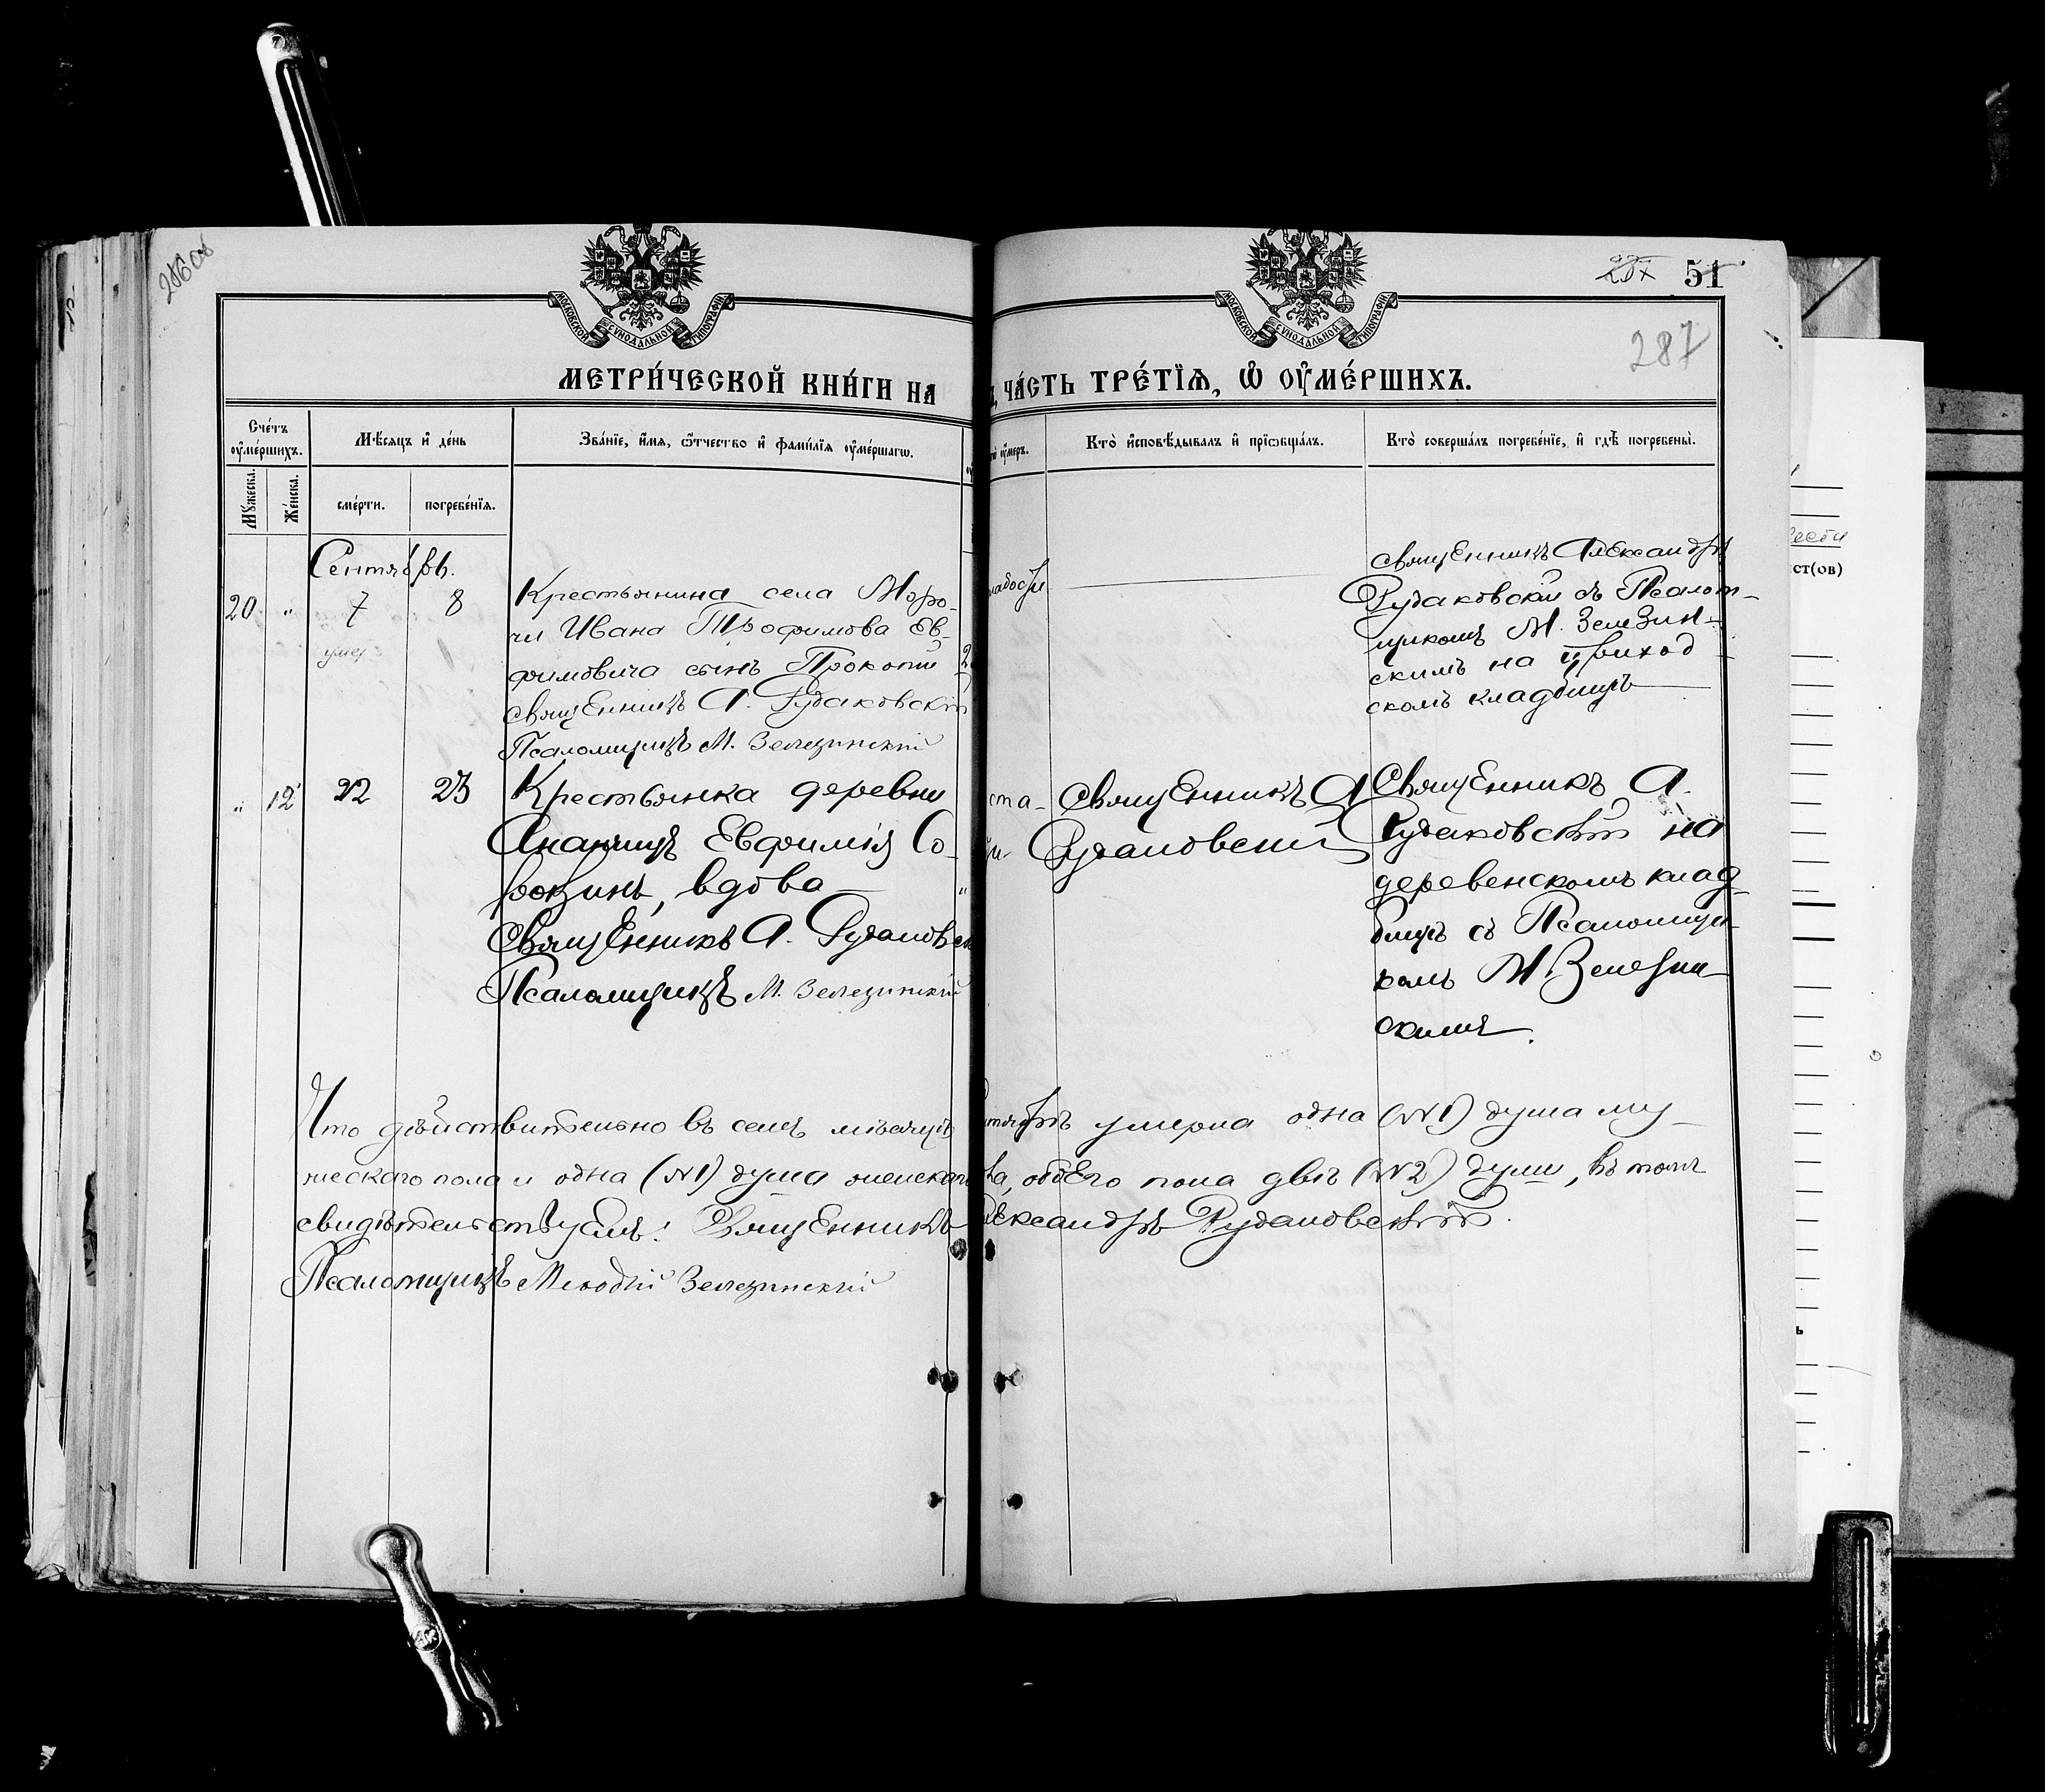 286 об
МОСКОВСКОЙ СУНОДАЛЬНОЙ ТИПОГРАФІИ
МОСКОВСКОЙ СУНОДАЛЬНОЙ ТИПОГРАФІИ
287 51
287
МЕТРИ́ЧЕСКОЙ КНИ́ГИ НА
ЧА́СТЬ ТРЕ́ТІѦ, Ѡ ОУ҆МЕ́РШИХЪ.
Сче́тъ оу҆ме́ршихъ.
Мѣ́сяцъ и҆ де́нь
Зва́нїе, и҆́мя, ѻ҆́тчество и҆ фами́лїя оу҆ме́ршагѡ.
оу҆́меръ.
Кто̀ и҆сповѣ́дывалъ и҆ прїѡбща́лъ.
Кто̀ соверша́лъ погребе́нїе, и҆ гдѣ̀ погребены̀.
Мꙋ́жеска.
Же́нска.
сме́рти.
погребе́нїя.
Сентябрь.
20 " 7 8
Крестьянина села Моро-
чи Ивана Трофимова Ев-
фимовича сынъ Прокопій
Священникъ А. Рудаковскій
Псаломщикъ М. Зелезинскій
младости
Священникъ Александръ
Рудаковскій съ Псалом-
щикомъ М. Зелезин-
скимъ на приход
скомъ кладбищѣ
" 12 22 23
Крестьянка деревни
Евфимія Со-
вдова
Священникъ А. Рудаковск
Псаломщикъ М. Зелезинскій
ста-
Священникъ А
Рудаковскій
Священникъ А.
Рудаковскій на
деревенскомъ клад
бищѣ съ Псаломщи
комъ М. Зелезин
скимъ.
Что дѣйствительно въ семъ мѣсяцѣ
тябрѣ умерла одна (№1) душа му-
жескаго пола и одна (№1) душа женскаго
ла, обоего пола двѣ (№2) души, въ томъ
свидѣтельствуемъ: Священникъ
лександръ Рудаковскій.
Псаломщикъ Меѳодій Зелезинскій
ст(ов)